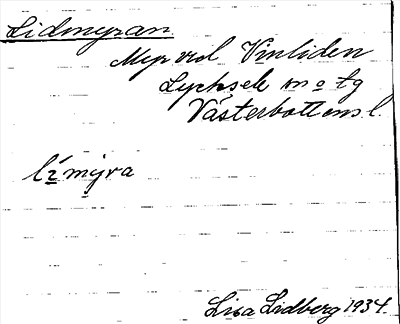 Lidmyran.
Myr vid Vinliden
Lycksele m o tg
Västerbottens l.
límỳra
Lisa Lidberg 1934.